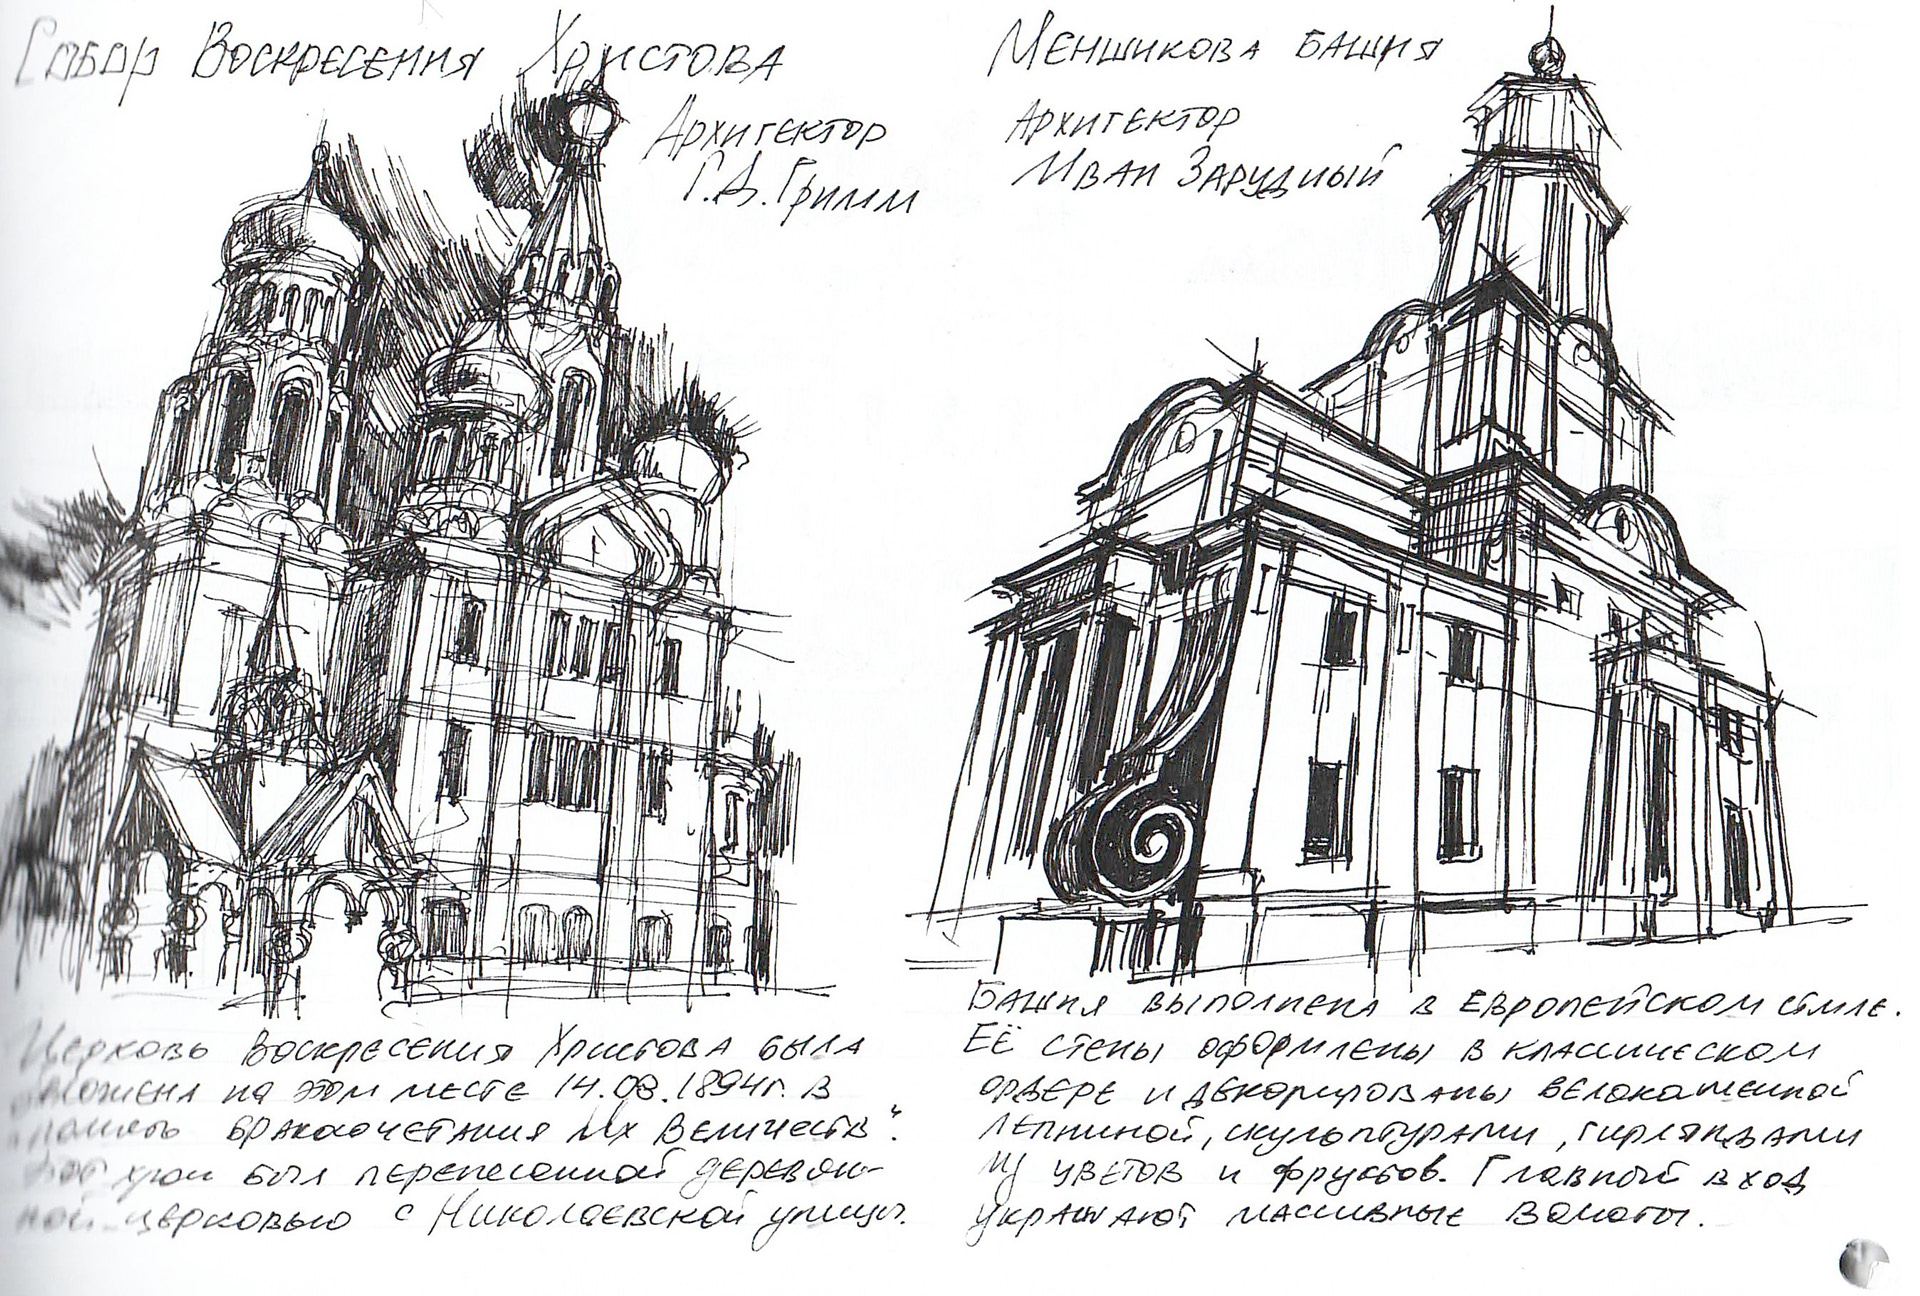 Собор Воскресения Христова
Архитектор
Г.Д. Гримм
Церковь Воскресения Христова была
заложена на этом месте 14.08.1894г. в
память бракосочетания Их Величеств".
Этот храм был перенесенной деревян-
ной церковью с Николаевской улицы.
Меншикова башня
Архитектор
Иван Зарудный
Башня выполнена в европейском стиле.
Её стены оформлены в классическом
ордере и декорированы белокаменной
лепниной, скульптурами, гирляндами
из цветов и фруктов. Главный вход
украшают массивные волюты.